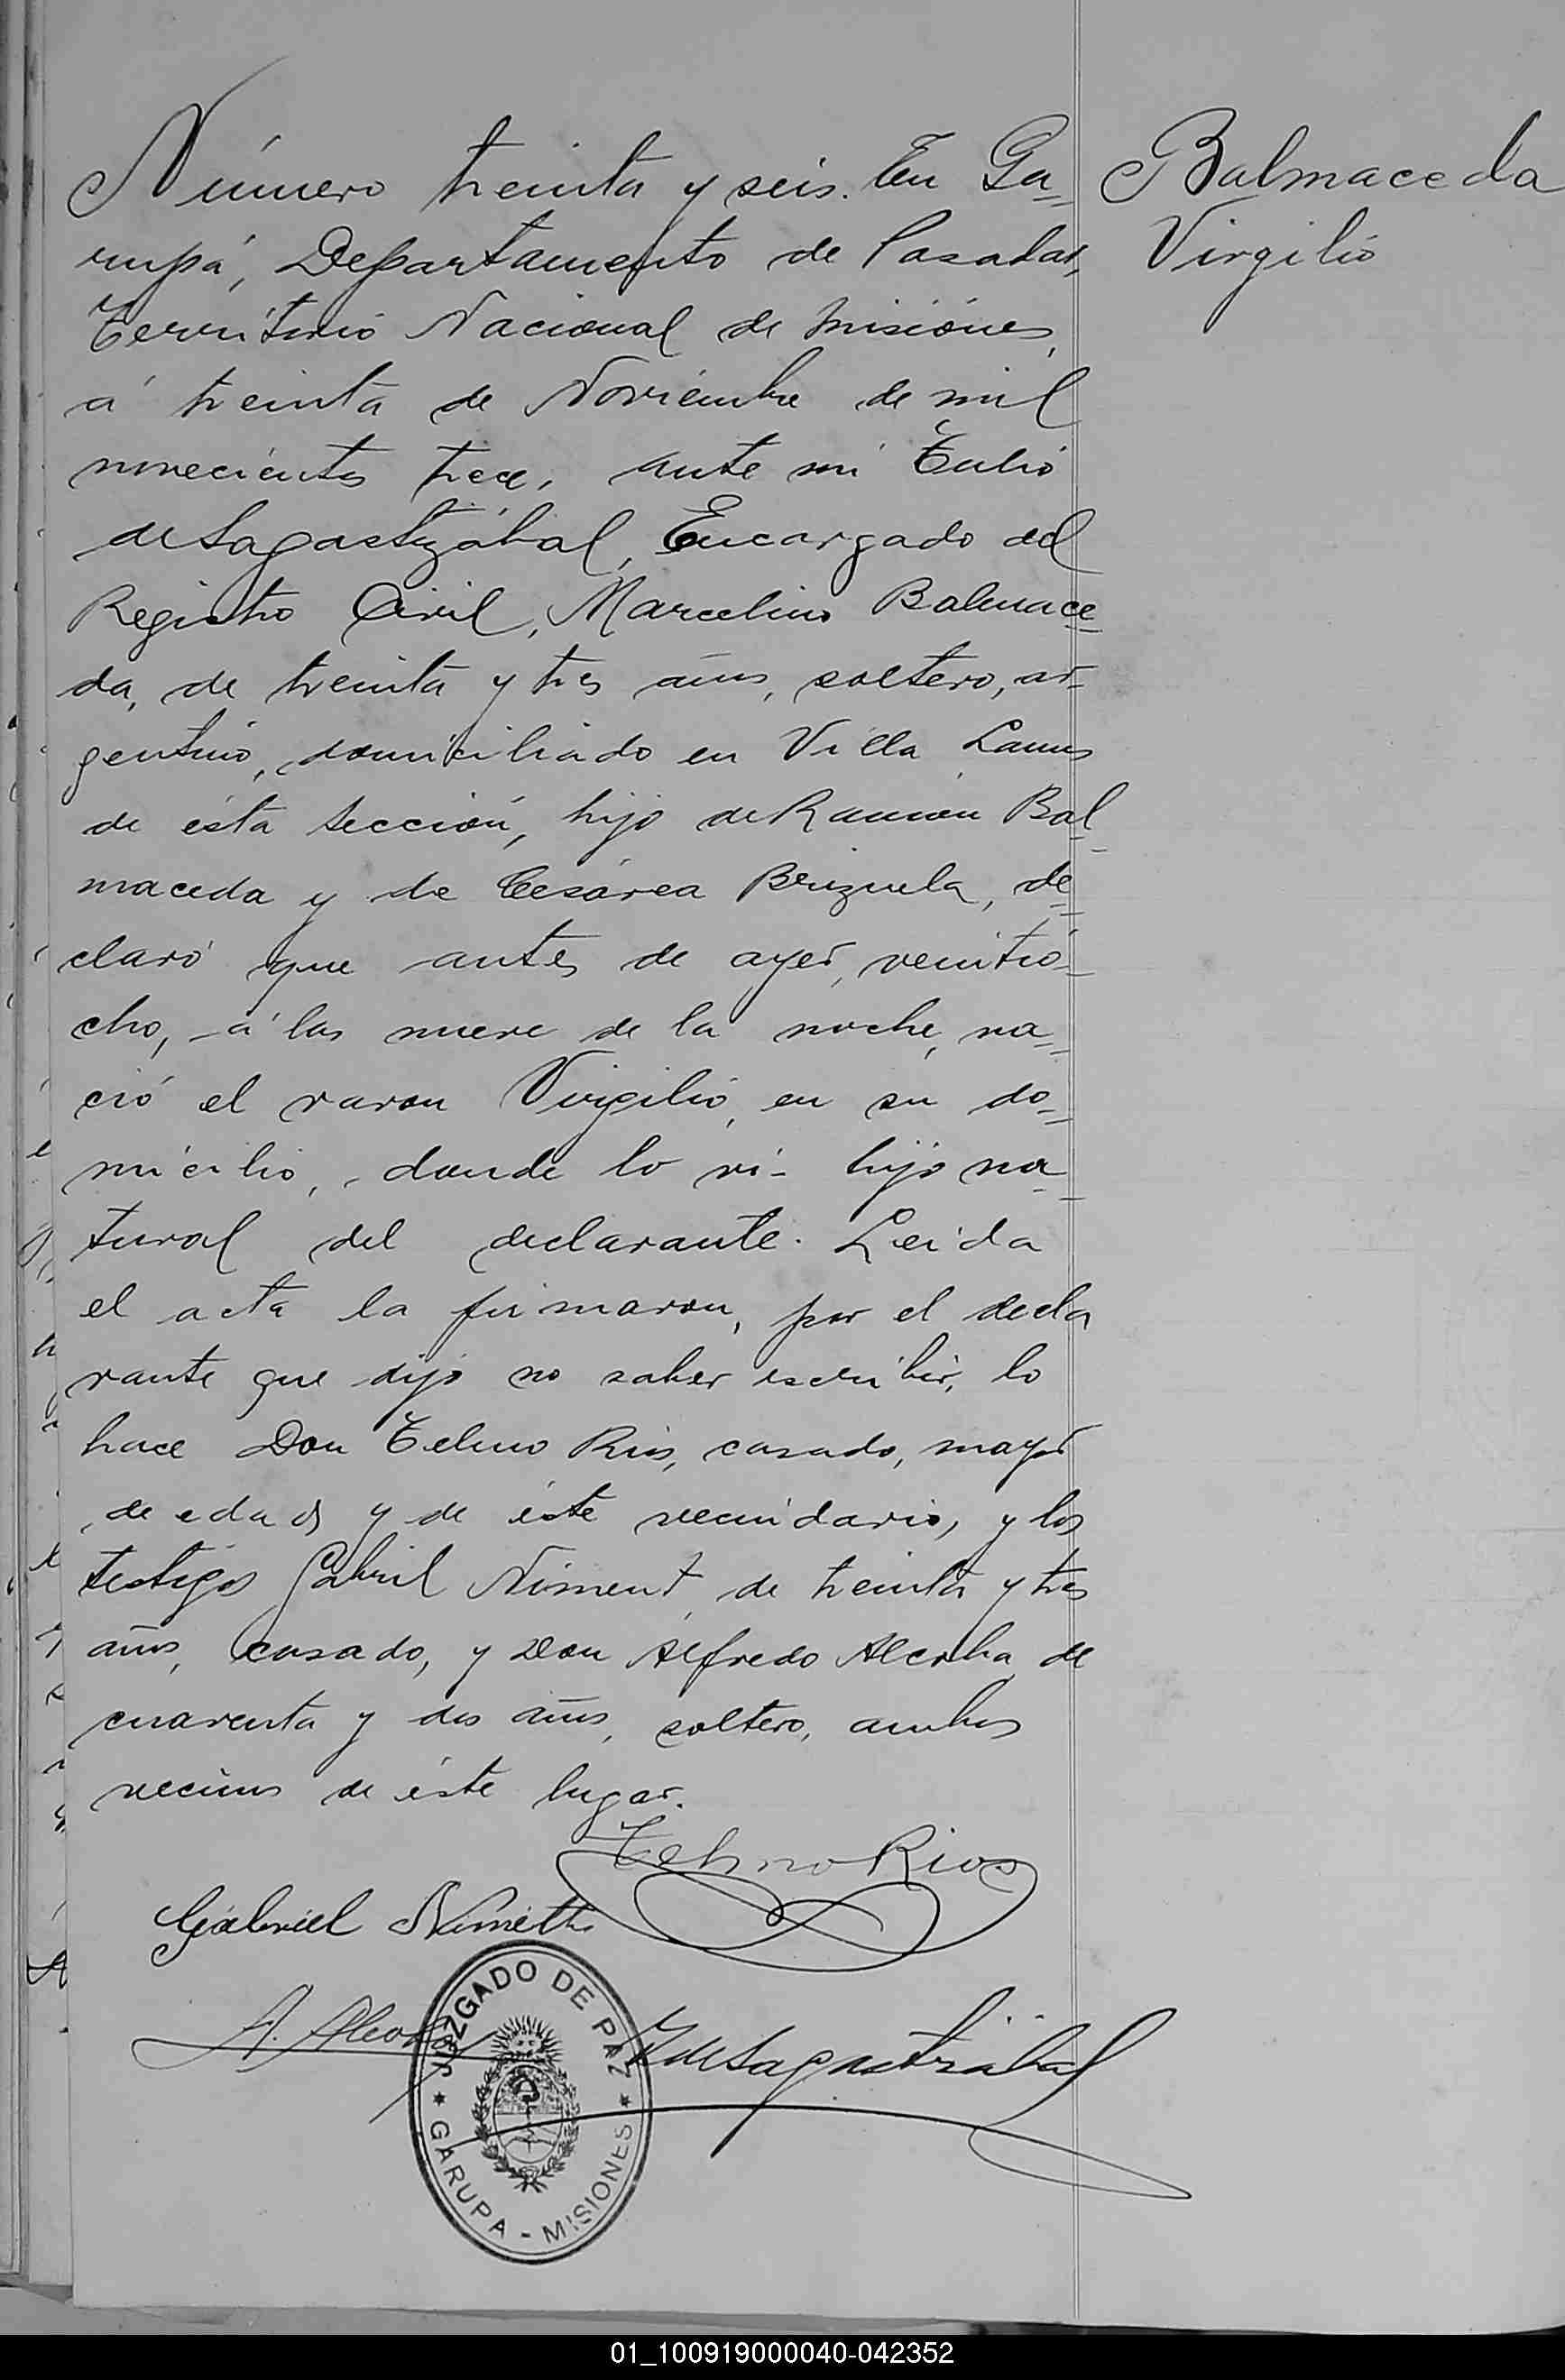 Número treinta y seis. En Ga=
rupá, Departamento de Posadas,
Territorio Nacional de Misiónes,
á treinta de Noviembre de mil
novecientos trece, ante mi Tulio
de Sagastizábal, Encargado del
Registro Civil, Marcelino Balmace=
da, de treinta y tres años, soltero, ar=
gentino, domiciliado en Villa Lanus
de ésta sección, hijo de Ramón Bal=
maceda y de Cesárea Brizuela, de=
claró que antes de ayer, veintio=
cho, á las nueve de la noche, na=
ció el varon Virgilio, en su do=
micilio, donde lo vi- hijo na=
tural del declarante. Leida
el acta la firmaron, por el decla
rante que dijo no saber escribir, lo
hace Don Telmo Rios, casado, mayor
de edad y de éste vecindario, y los
testigos Gabriel Niment, de treinta y tres
años, casado, y Don Alfredo Alcorba, de
cuarenta y dos años, soltero, ambos
vecinos de éste lugar.
Balmaceda
Virgilio
Telmo Rios
Gabriel Nimeth
A. Alcorba
T de Sagastizábal
JUZGADO DE PAZ
* GARUPA - MISIONES *
01_100919000040-042352